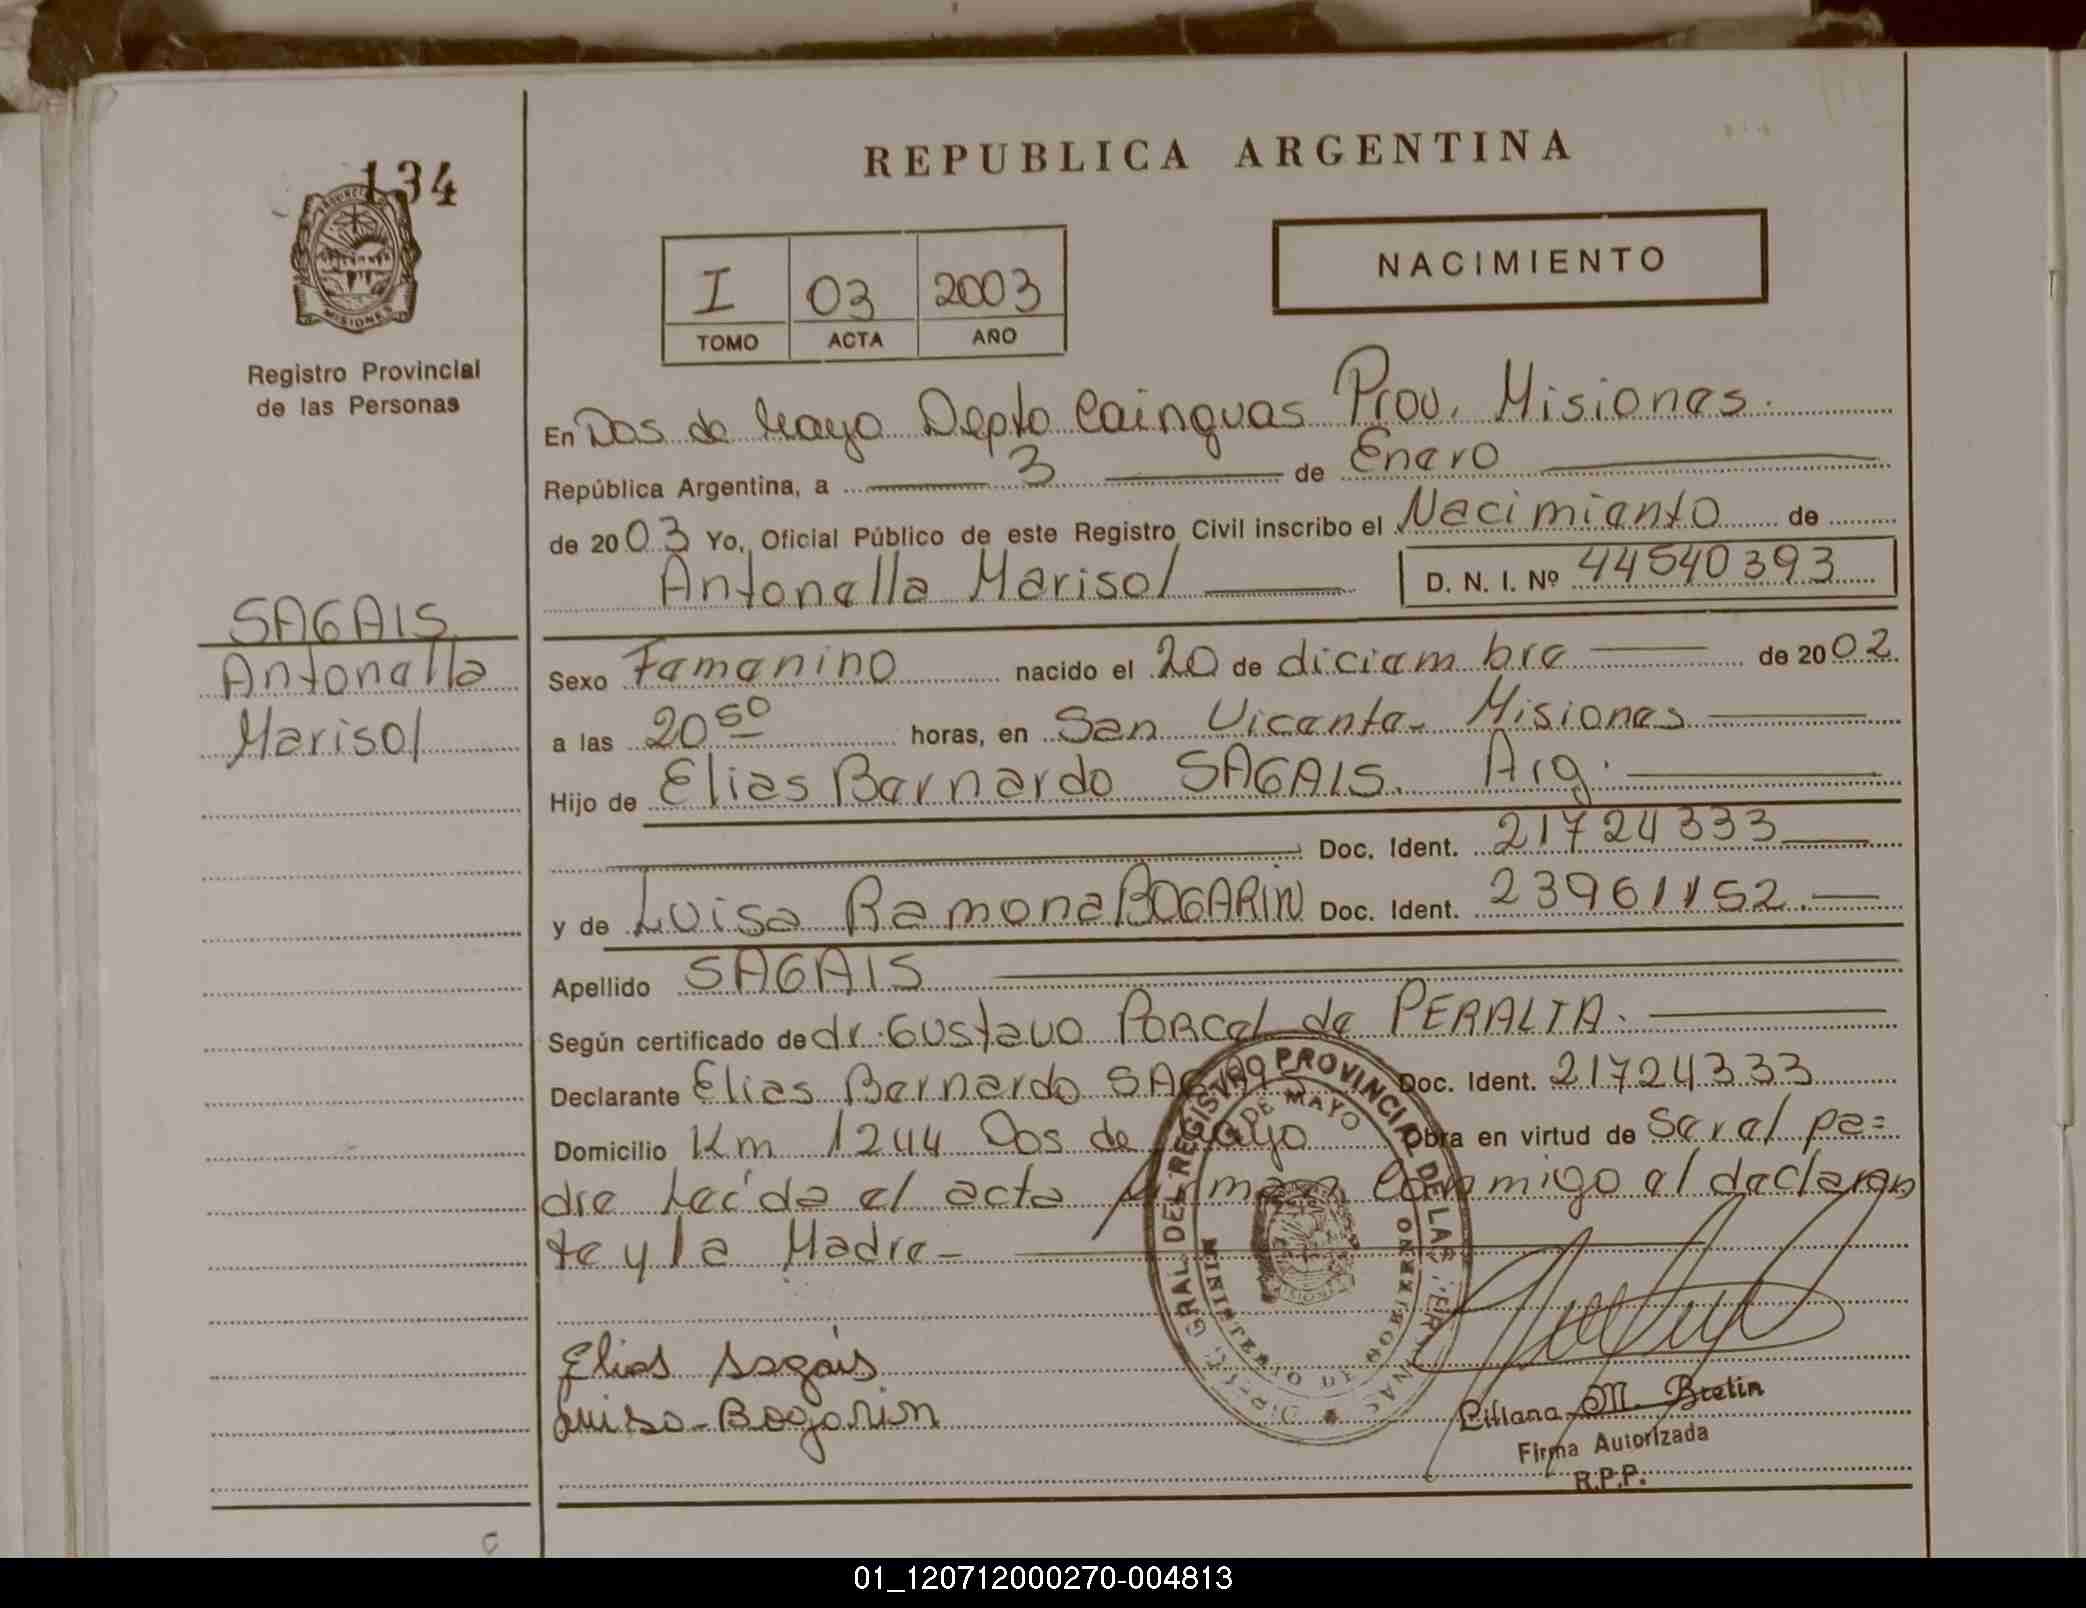 134
MISIONES
Registro Provincial
de las Personas
REPUBLICA ARGENTINA
I 03 2003
TOMO ACTA AÑO
NACIMIENTO
En Dos de Mayo Depto Cainguas Prov. Misiones.
República Argentina, a 3 de Enero
de 2003 Yo, Oficial Público de este Registro Civil inscribo el Nacimiento de
Antonella Marisol D. N. I. Nº 44540393
SAGAIS
Antonella
Marisol
Sexo Femenino nacido el 20 de diciembre de 2002
a las 20 50 horas, en San Vicente - Misiones
Hijo de Elias Bernardo SAGAIS. Arg.
Doc. Ident. 21724333
y de Luisa Ramona BOGARIN Doc. Ident. 23961152.
Apellido SAGAIS
Según certificado de dr. Gustavo PORCEL de PERALTA.
Declarante Elias Bernardo SAGAIS Doc. Ident. 21724333
Domicilio Km 1244 Dos de Mayo Obra en virtud de Ser el pa=
dre Leída el acta firman conmigo el declaran
te y la Madre-
DIREC. GRAL. DEL REGISTRO PROVINCIAL DE LAS PERSONAS
DE MAYO
MINISTERIO DE GOBIERNO
Elias Sagais
Luisa-Bogarin
Liliana M. Bretin
Firma Autorizada
R.P.P.
01_120712000270-004813